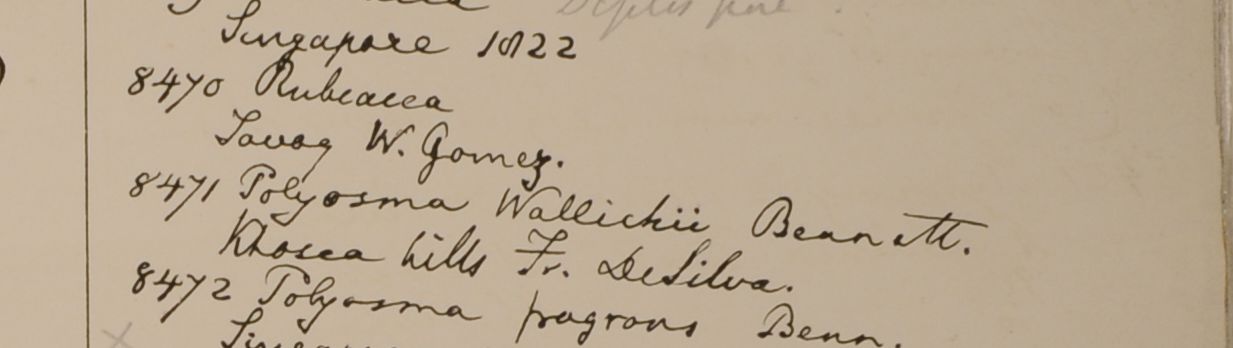 Singapore 1822
8470 Rubiacea
Tavoy W. Gomez.
8471 Polyosma Wallichii Bennett.
Khosea hills Fr. DeSilva.
8472 Polyosma fragrans Benn.